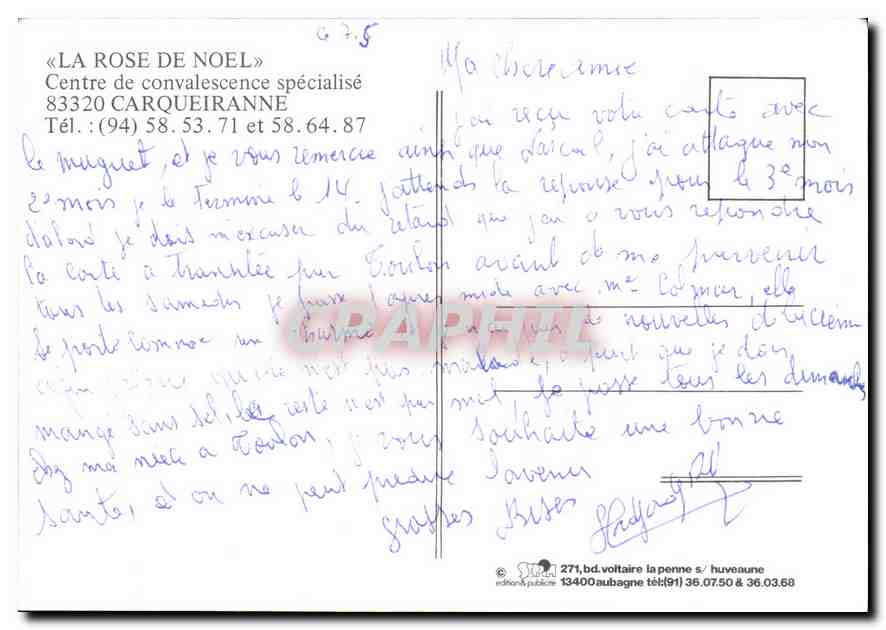 Ce 7.5
«LA ROSE DE NOEL»
Centre de convalescence spécialisé
83320 CARQUEIRANNE
Tél. : (94) 58.53.71 et 58.64.87
Ma chere amie
j'ai reçu votre carte avec
le muguet, et je vous remercie ainsi que Pascal, j'ai attaqué mon
2e mois je le termine le 14. j'attends la reponse pour le 3e mois
d'abord je dois m'excuser du retard que j'ai a vous repondre
la carte a transitée par Toulon avant de me parvenir
tous les samedis je passe l'apres midi avec Me Colmar, elle
se porte comme un charme n'a pas de nouvelles
n'est pas malade, a part que je dois
mangé sans sel, le reste n'est pas mal, je passe tous les dimanches
chez ma niece a Toulon, je vous souhaite une bonne
santé, et on ne peut predire l'avenir
grosses Bises
CPAPHIL
© SMPH
edition & publicité
271, bd. voltaire la penne s/ huveaune
13400 aubagne tél:(91) 36.07.50 & 36.03.68